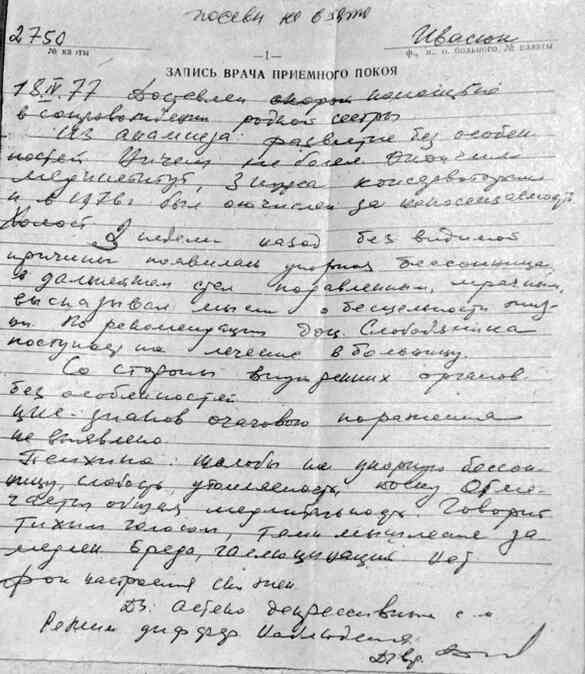 посевы не взяты
2750
Ивасюк
№ карты
—1—
ф., и., о. больного, № палаты
ЗАПИСЬ ВРАЧА ПРИЕМНОГО ПОКОЯ
18.IV.77 Доставлен скорой помощью
в сопровождении родной сестры
Из анамнеза: развитие без особен-
ностей Ничем не болел Окончил
мединститут, 3 курса консерватории
и в 1976г был отчислен за
Холост
2 недели назад без видимой
причины появилась упорная бессонница,
в дальнейшем стал подавленным, мрачным,
высказывал мысли о бесцельности жиз-
ни. По рекомендации доц. Слободяника
поступает на лечение в больницу.
Со стороны внутренних органов
без особенностей
ЦНС: знаков очагового поражения
не выявлено
Психика: жалобы на упорную бессон-
ницу, слабость, утомляемость, Отме-
чается общая медлительность. Говорит
тихим голосом, темп мышления за-
медлен Бреда, галлюцинаций нет
Фон настроения снижен.
Дз. Астено депрессивный с-м
Режим наблюдения